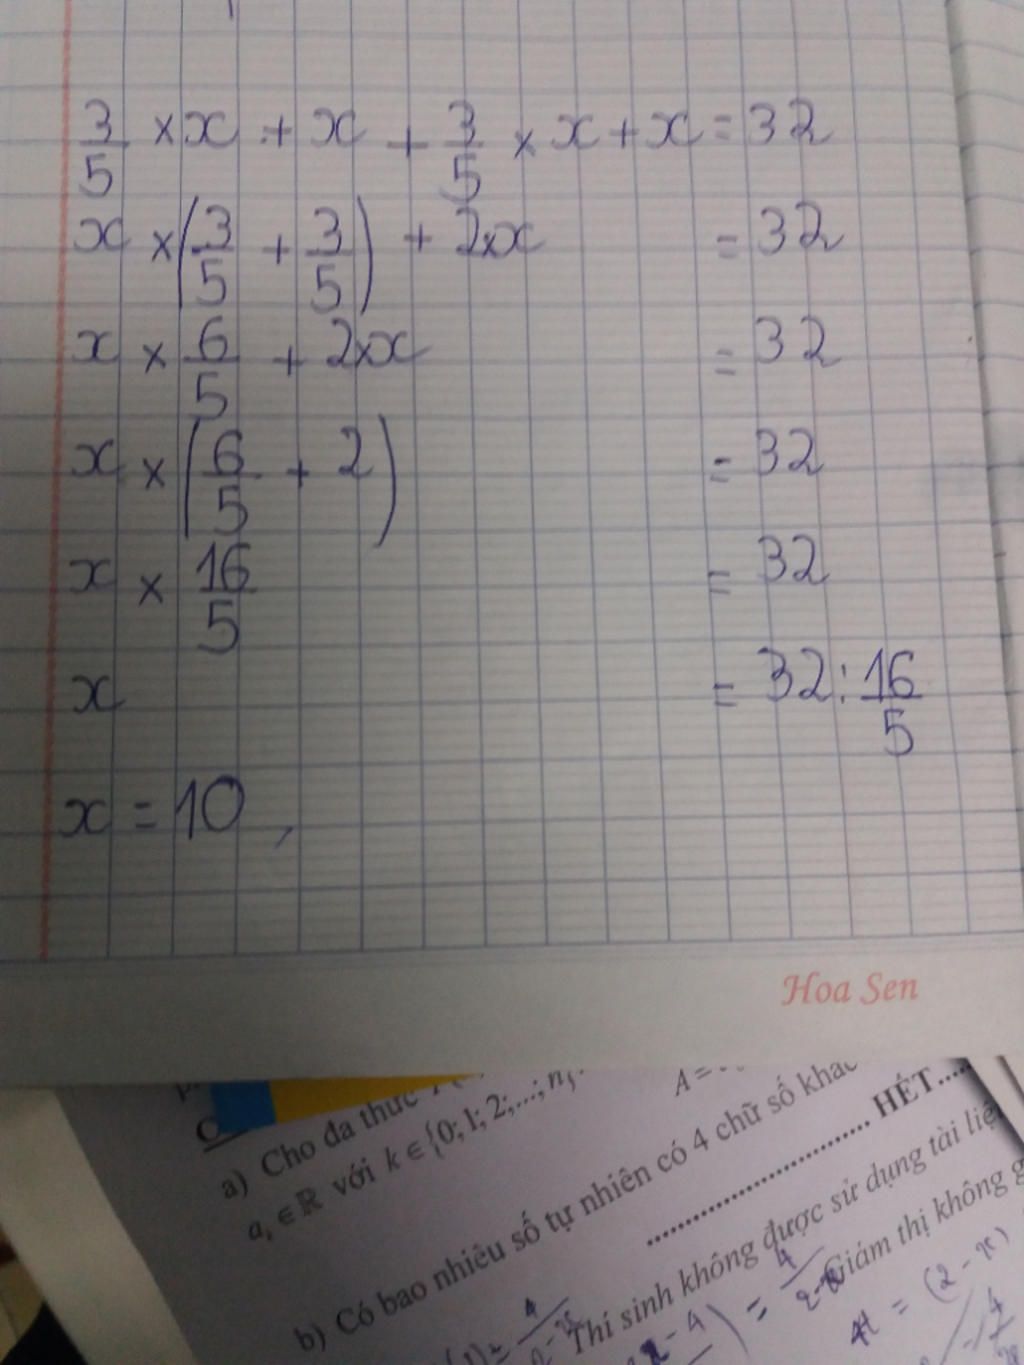 3/5 × x + x + 3/5 × x + x = 32
x × (3/5 + 3/5) + 2×x = 32
x × 6/5 + 2×x = 32
x × (6/5 + 2) = 32
x × 16/5 = 32
x = 32 : 16/5
x = 10
Hoa Sen
a) Cho đa thức
a_i ∈ ℝ với k ∈ {0; 1; 2; ...; n},
A =
b) Có bao nhiêu số tự nhiên có 4 chữ số khác
HẾT
Thí sinh không được sử dụng tài liệ
Giám thị không g